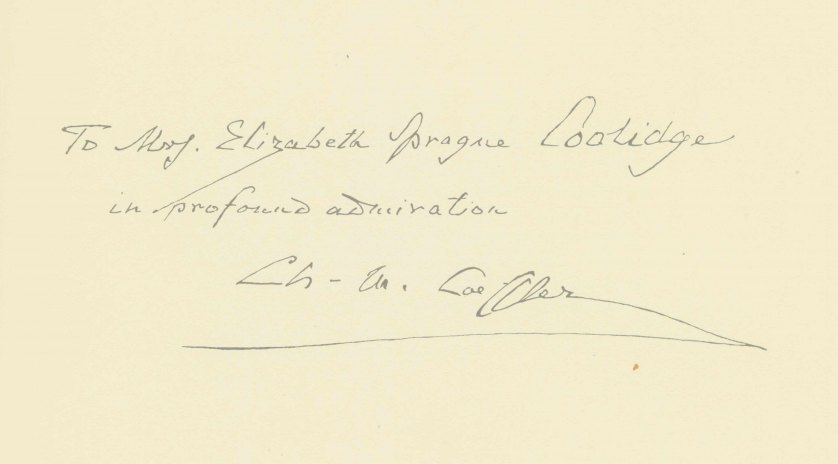 To Mrs. Elizabeth Sprague Coolidge
in profound admiration
Ch-M. Loeffler